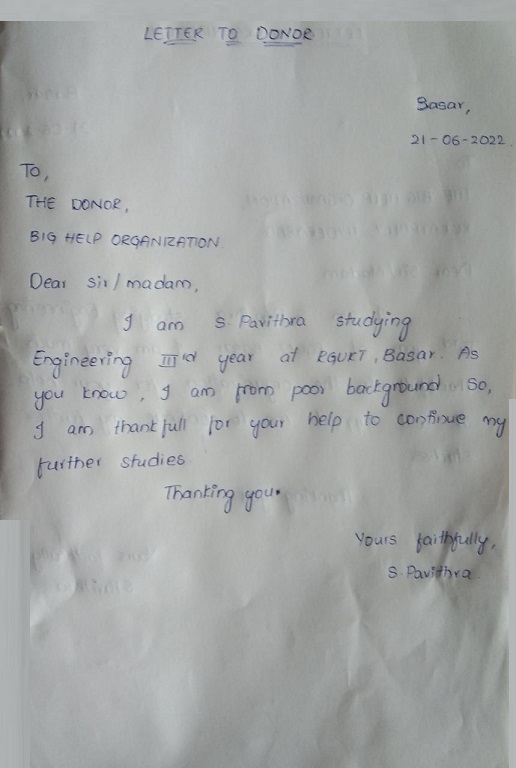 LETTER TO DONOR
Basar,
21-06-2022.
To,
THE DONOR,
BIG HELP ORGANIZATION
Dear sir/madam,
I am S. Pavithra studying
Engineering IIIrd year at RGUKT, Basar. As
you know, I am from poor background. So,
I am thankfull for your help to continue my
further studies.
Thanking you.
Yours faithfully,
S. Pavithra